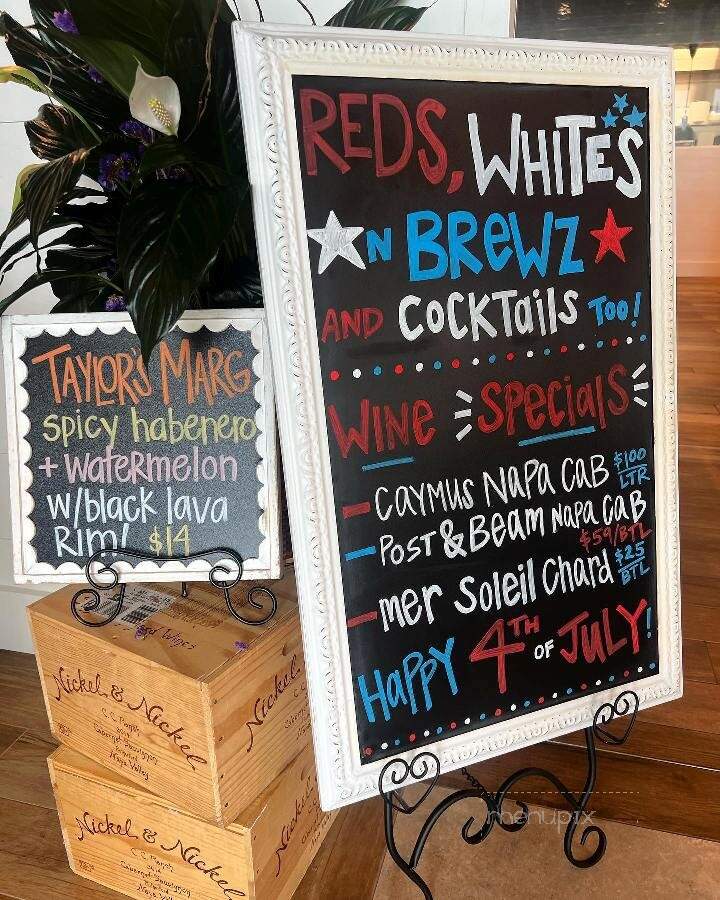 REDS, WHITES
N BREWZ
AND COCKTAilS TOO!
WINE SPECIalS
- CAYMUS NAPA CAB $100 LTR
- POST & BEAM NAPA CAB $59/BTL
- mer Soleil Chard $25 BTL
HAPPY 4TH OF JULY!
TAYLOR'S MARG
spicy habenero
+ watermelon
w/black lava
RIM! $14
Nickel & Nickel
Cabernet Sauvignon
Napa Valley
Nickel & Nickel
Nickel & Nickel
Cabernet Sauvignon
Napa Valley
Nickel & Nickel
menupix